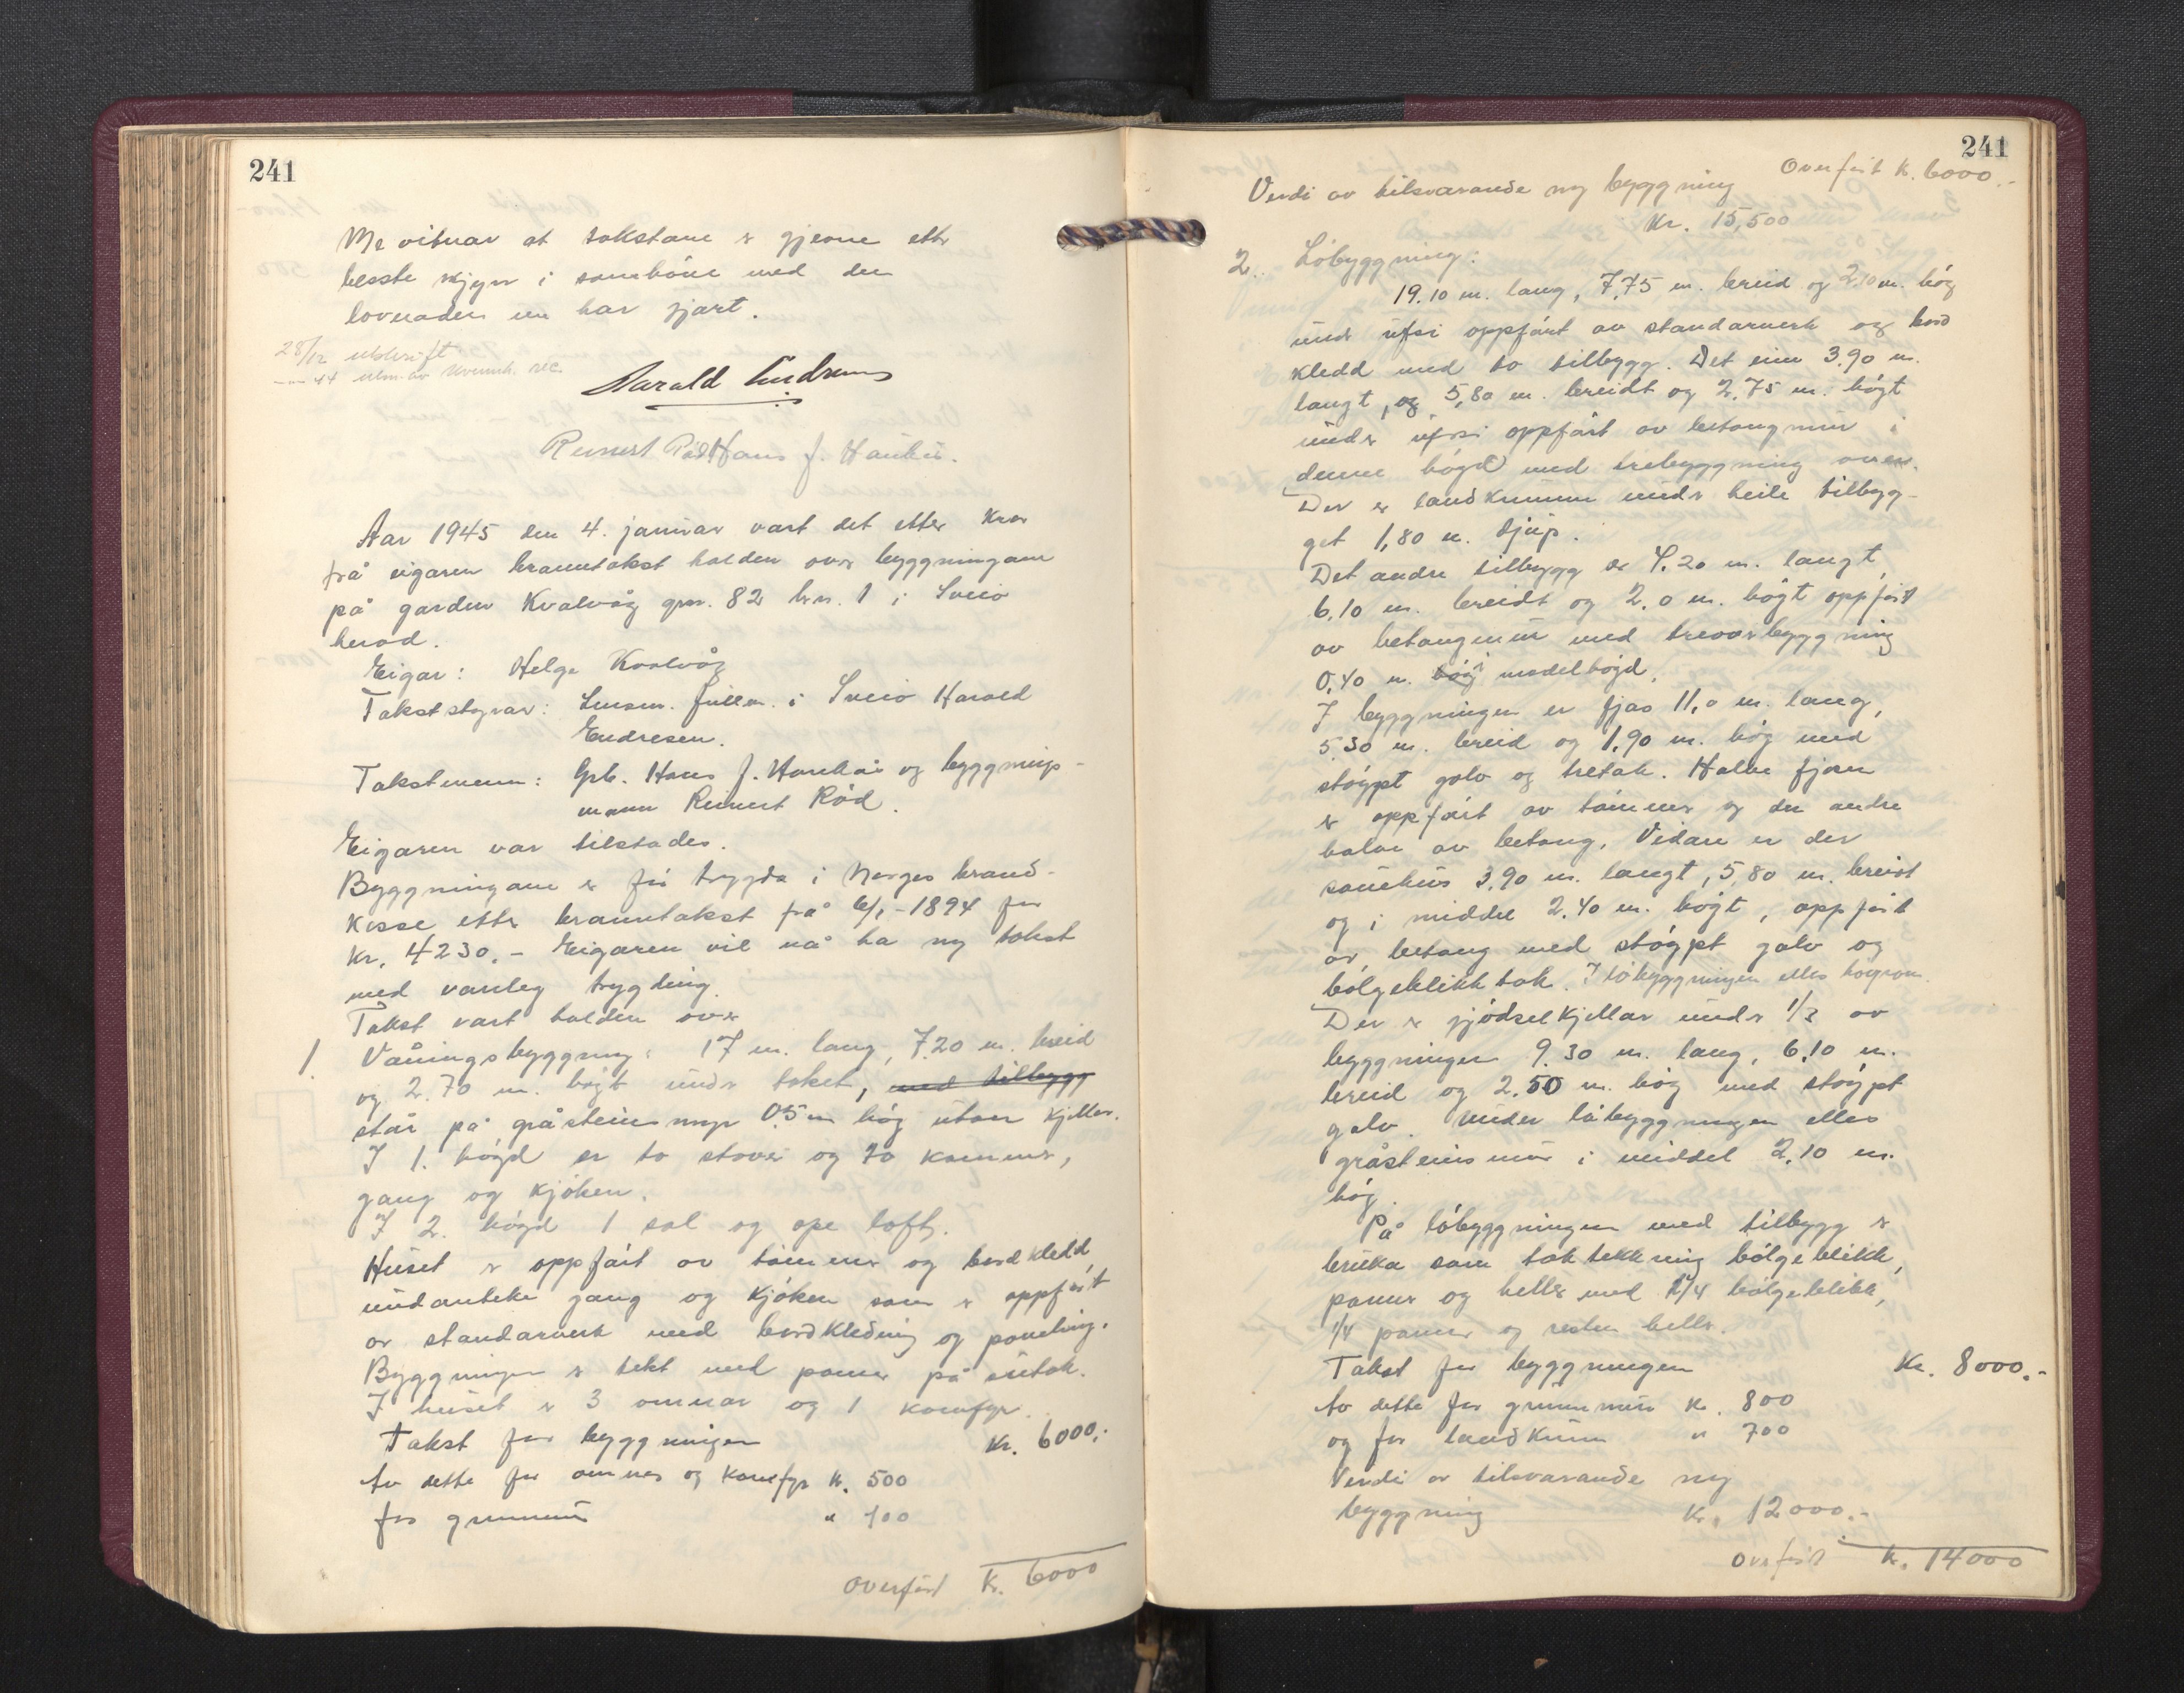 241
Me vitnar at takstane er gjevne etter
beste skjyn i samhöve med den
lovnaden me har gjort.
28/12 utskrift
Harald Endresen
Reinert Röd Hans J. Haukås.
Aar 1945 den 4. januar vart det etter krav
frå eigaren branntakst halden over byggningane
på garden Kvalvåg gnr. 82 brn. 1 i Sveio
herad.
Eigar: Helge Kvalvåg
Takststyrar: Lensm. fullm. i Sveio Harald
Endresen.
Takstmenn: Grb. Hans J. Haukås og byggnings-
mann Reinert Röd.
Eigaren var tilstades.
Byggningane er för trygda i Norges brand-
kasse etter branntakst frå 6/1-1894 for
Kr. 4230.- Eigaren vil nå ha ny takst
med vanleg trygding.
Takst vart halden over
1. Våningsbyggning: 17 m. lang, 7.20 m. breid
og 2.70 m. högt under taket, med tilbygg
står på gråsteinsmur 0.5 m hög utan kjellar.
I 1. högd er to stover og to kammer,
gang og kjöken.
I 2. högd 1 sal og ope loft.
Huset er oppfört av tömmer og bordkledd
undanteke gang og kjöken som er oppfört
av standarverk med bordkledning og paneling.
Byggningen er tekt med panner på sutak.
I huset er 3 omnar og 1 komfyr.
Takst for byggningen Kr. 6000.-
Av dette for omner og komfyr k. 500
for grunnmur " 400
Overfört k. 6000
241
Overfört k. 6000.-
Verdi av tilsvarande ny byggning
Kr. 15,500
2. Löbyggning:
19.10 m. lang, 7,75 m. breid og 2.10 m. hög
under ufsi oppfört av standarverk og bord
kledd med to tilbygg. Det eine 3.90 m.
langt, og 5,80 m. breidt og 2.75 m. högt
under ufsi oppfört av betongmur i
denne högd med trebyggning over.
Der er landkumme under heile tilbygg-
get 1,80 m. djup.
Det andre tilbygg er 4.20 m. langt,
6.10 m. breidt og 2.0 m. högt oppfört
av betongmur med treoverbyggning
0,40 m. hög i medelhögd.
I byggningen er fjøs 11,0 m. lang,
5.30 m. breid og 1.90 m. hög med
stöypt golv og tretak. Halve fjösen
er oppfört av tömmer og den andre
halve av betong. Vidare er der
sauehus 3,90 m. langt, 5,80 m. breidt
og i middel 2.40 m. högt, oppfört
av betong med stöypt golv og
bölgeblikktak. I löbyggningen elles höyrom.
Der er gjödselkjellar under 1/3 av
byggningen 9.30 m. lang, 6.10 m.
breid og 2.50 m. hög med stöypt
golv. Under löbyggningen elles
gråsteinsmur i middel 2.10 m.
hög.
På löbyggningen med tilbygg er
bruka som taktekkning bölgeblikk,
panner og heller med 1/4 bölgeblikk,
1/4 panner og resten heller.
Takst for byggningen Kr. 8000.-
Av dette for grunnmur Kr. 800
og for landkum " 700
Verdi av tilsvarande ny
byggning Kr. 12000.-
Overfört k. 14000